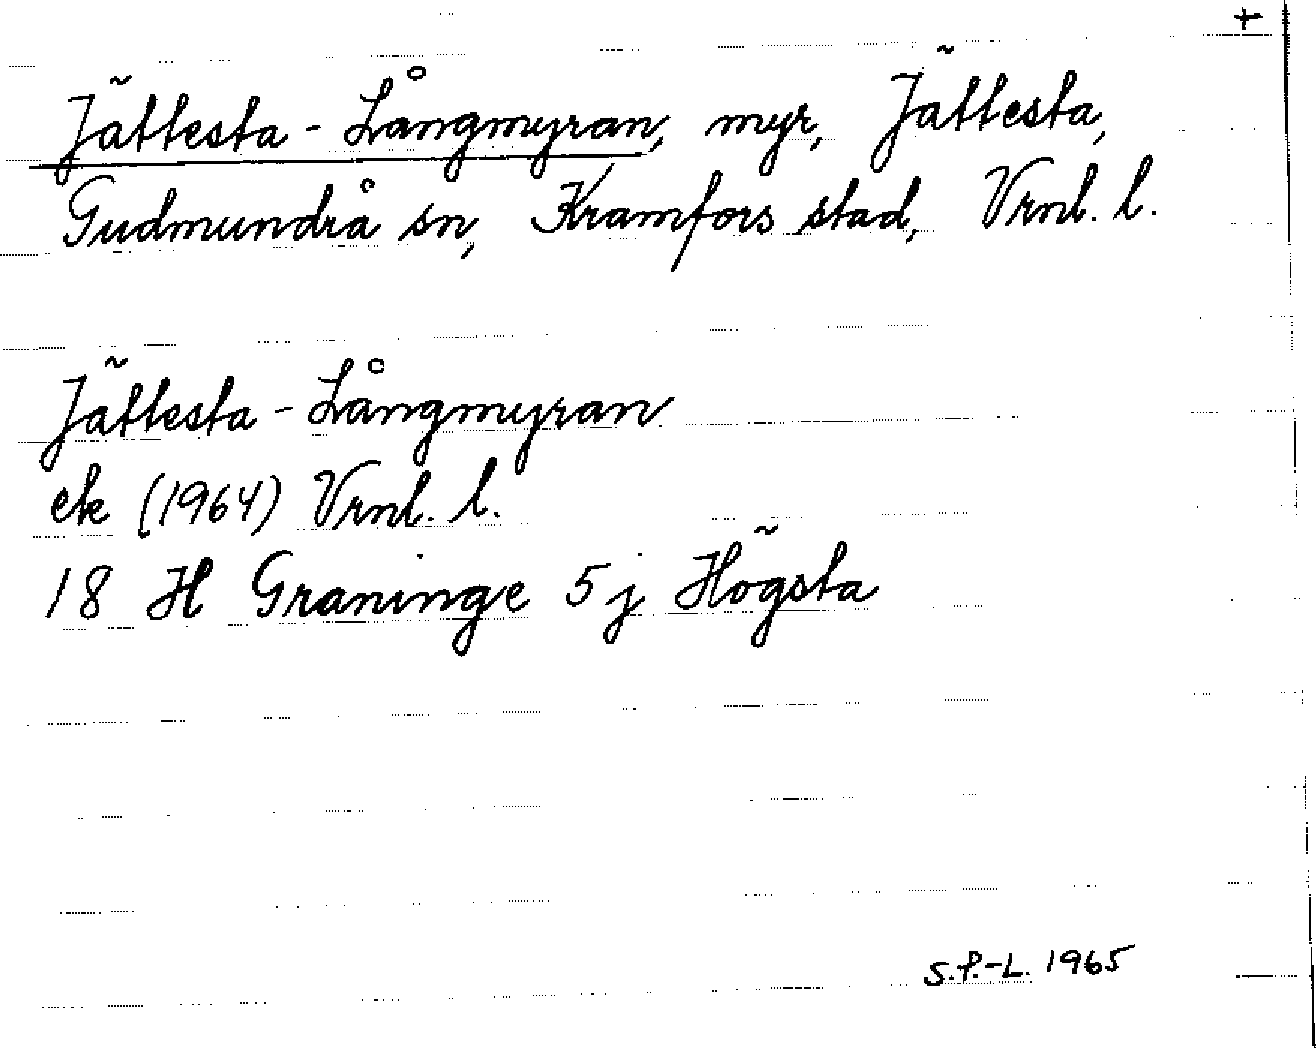 +
Jättesta-Långmyran, myr, Jättesta,
Gudmundrå sn, Kramfors stad, Vrnl. l.
Jättesta-Långmyran
ek (1964) Vrnl. l.
18 H Graninge 5 j Högsta
S.P.-L. 1965